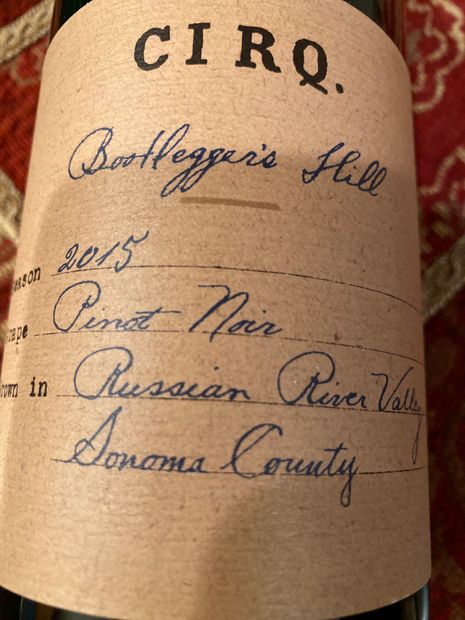 CIRQ.
Bootlegger's Hill
eason 2015
rape Pinot Noir
rown in Russian River Valley
Sonoma County